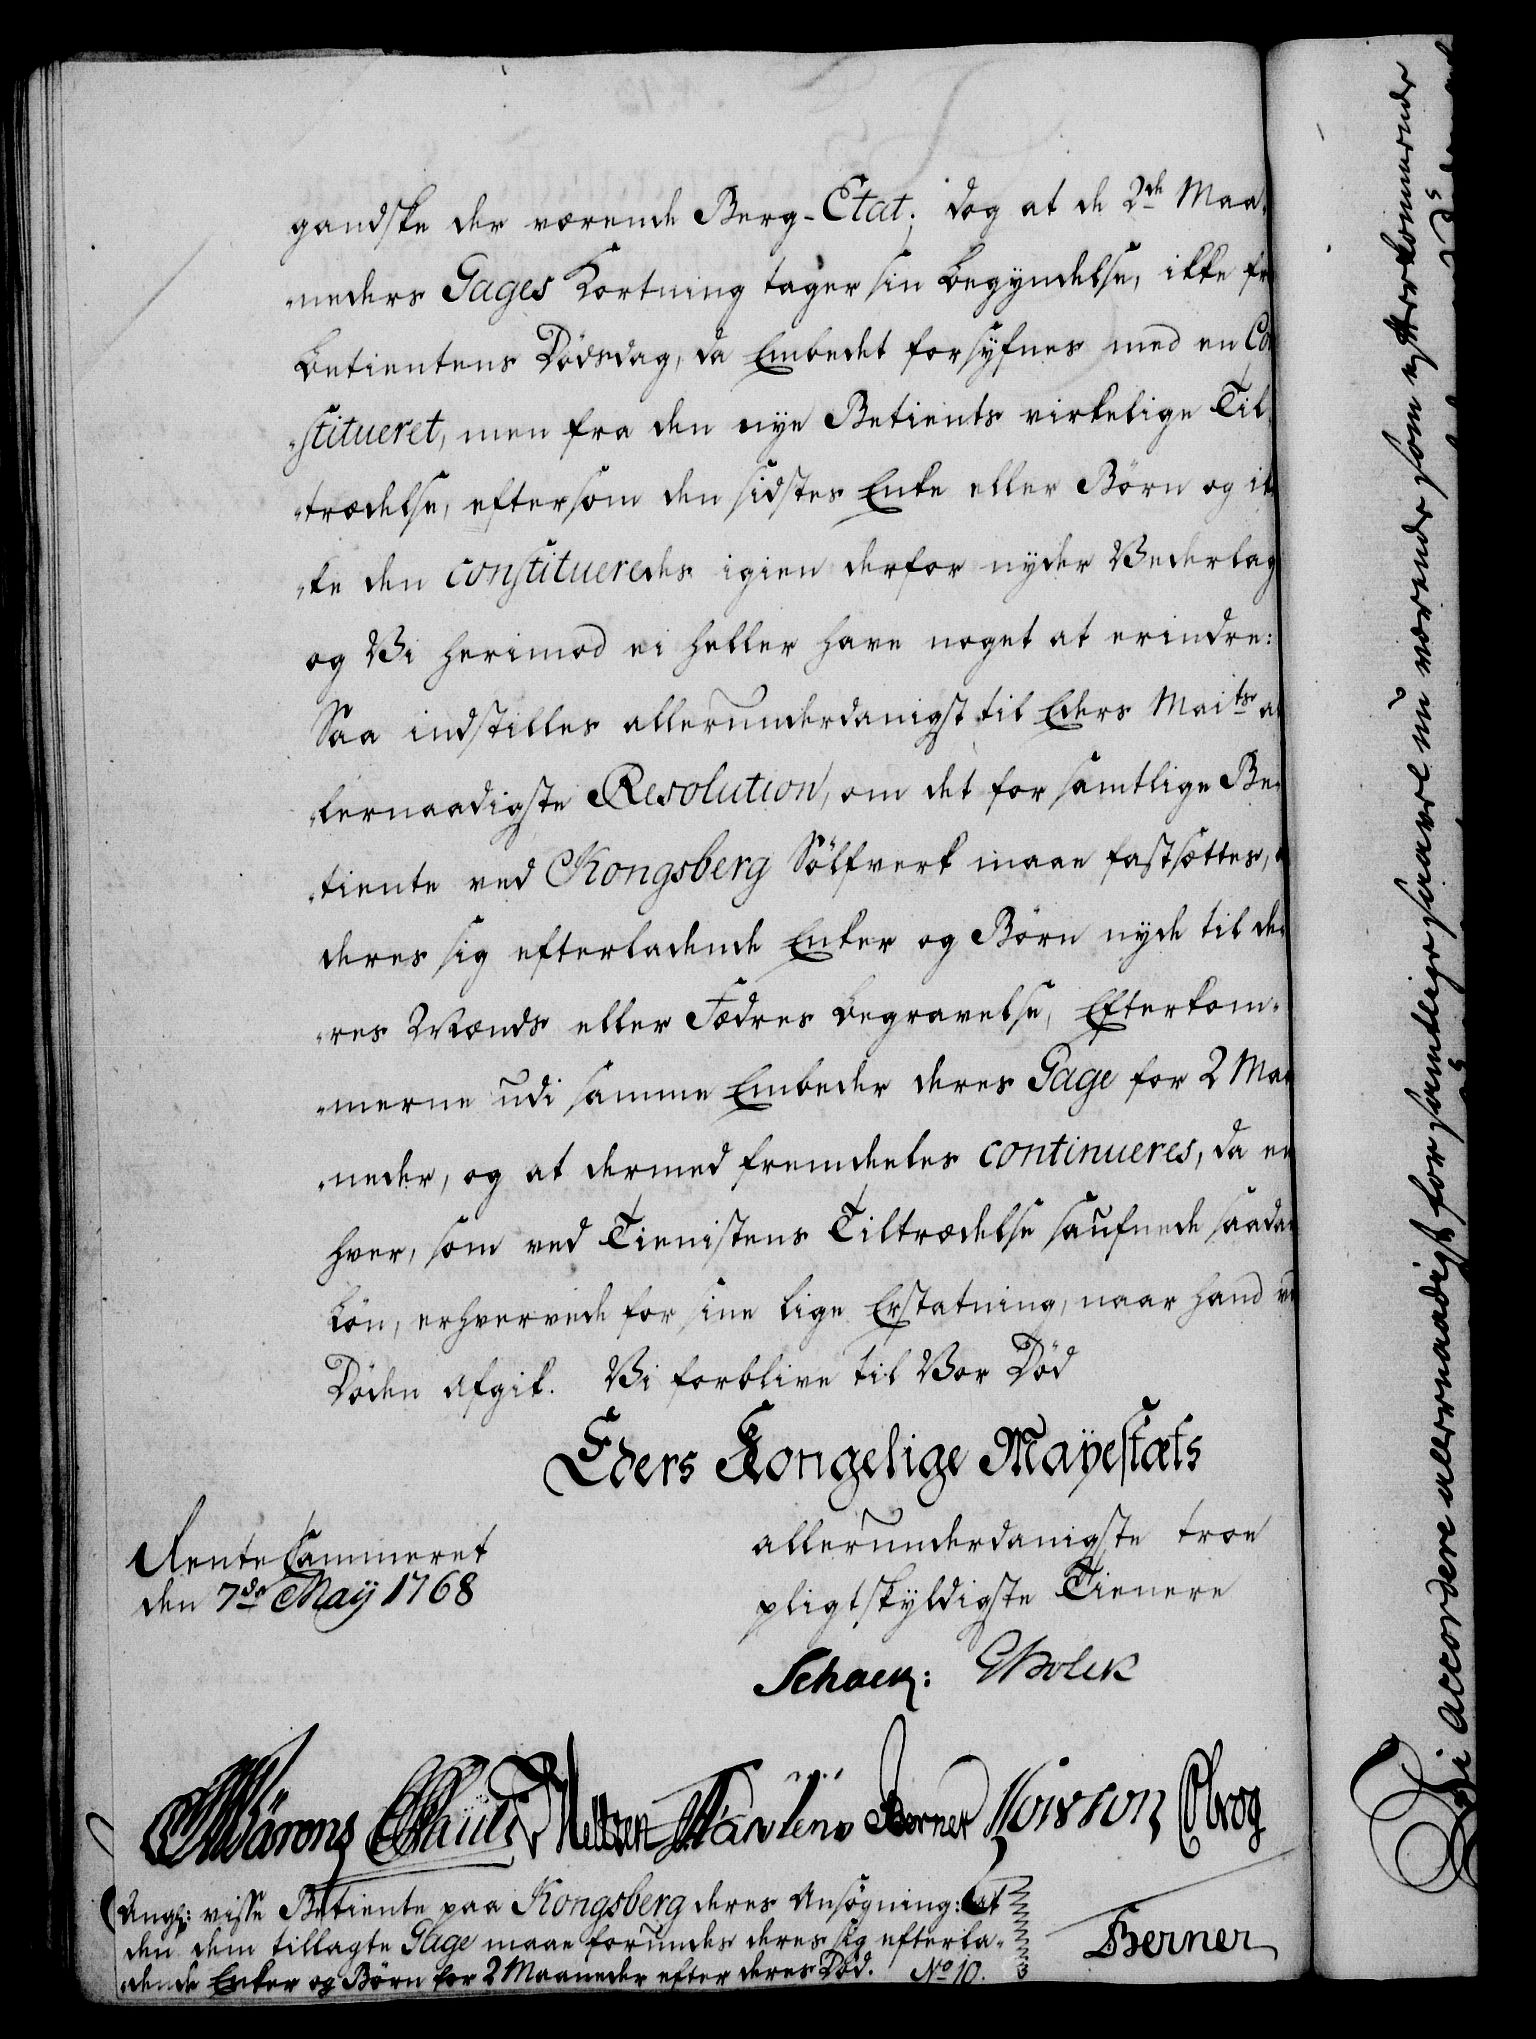 gandske der værende Berg-Etat; dog at de 2de Maa-
neders Gages Kortning tager sin begyndelse, ikke fra
betientens Dødsdag, da Embedet forsyfnes med en Con
stitueret, men fra den nye Betients virkelige Til
trædelse, eftersom den sidstes Enke eller Børn og ik
ke den constitueredes igien derfor nyder Vederlag
og Vi herimod ei heller have noget at erindre:
Saa indstilles allerunderdanigst til Eders Maits al
lernaadigste Resolution, om det for samtlige Be-
tiente ved Kongsberg Sölfverk maae fastsættes,
deres sig efterladende Enker og Børn nyde til de-
res Mænds eller Fædres begravelse, Efterkom-
merne udi samme Embeder deres Gage for 2 Maa
neder, og at dermed fremdeeles continueres, da en
hver, som ved Tienistens Tiltrædelse saufnede saadan
Løn, erhvervede for sine lige Erstatning, naar hand ved
Døden afgik. Vi forblive til Vor Død
Eders Kongelige Mayestæts
allerunderdanigste troe
pligtskyldigste Tienere
RenteCammeret
den 7de May 1768
Schack:
Berner
Ang: visse Betiente paa Kongsberg deres Ansøgning: at
den dem tillagte Gage maae forundes deres sig efterla-
dende Enker og Børn for 2 Maaneder efter deres Død. No 10.
Berner
Vi accordere allernaadigst for samtlige saavel nu værende som efterkommende